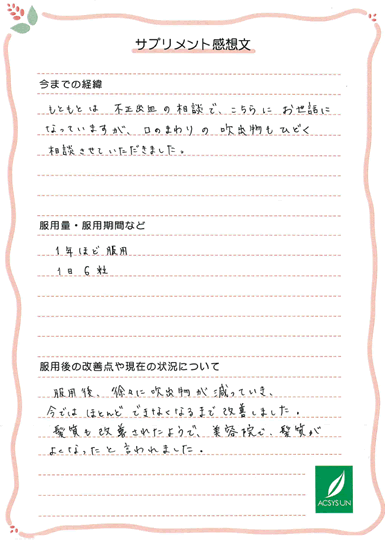 サプリメント感想文
今までの経緯
もともとは 不正出血の相談で、こちらに お世話に
なっていますが、口のまわりの 吹出物もひどく
相談させていただきました。
服用量・服用期間など
1年ほど服用
1日 6粒
服用後の改善点や現在の状況について
服用後、徐々に吹出物が減っていき、
今では ほとんど できなくなるまで 改善しました。
髪質も改善されたようで、美容院で、髪質が
よくなったと言われました。
ACSYSUN